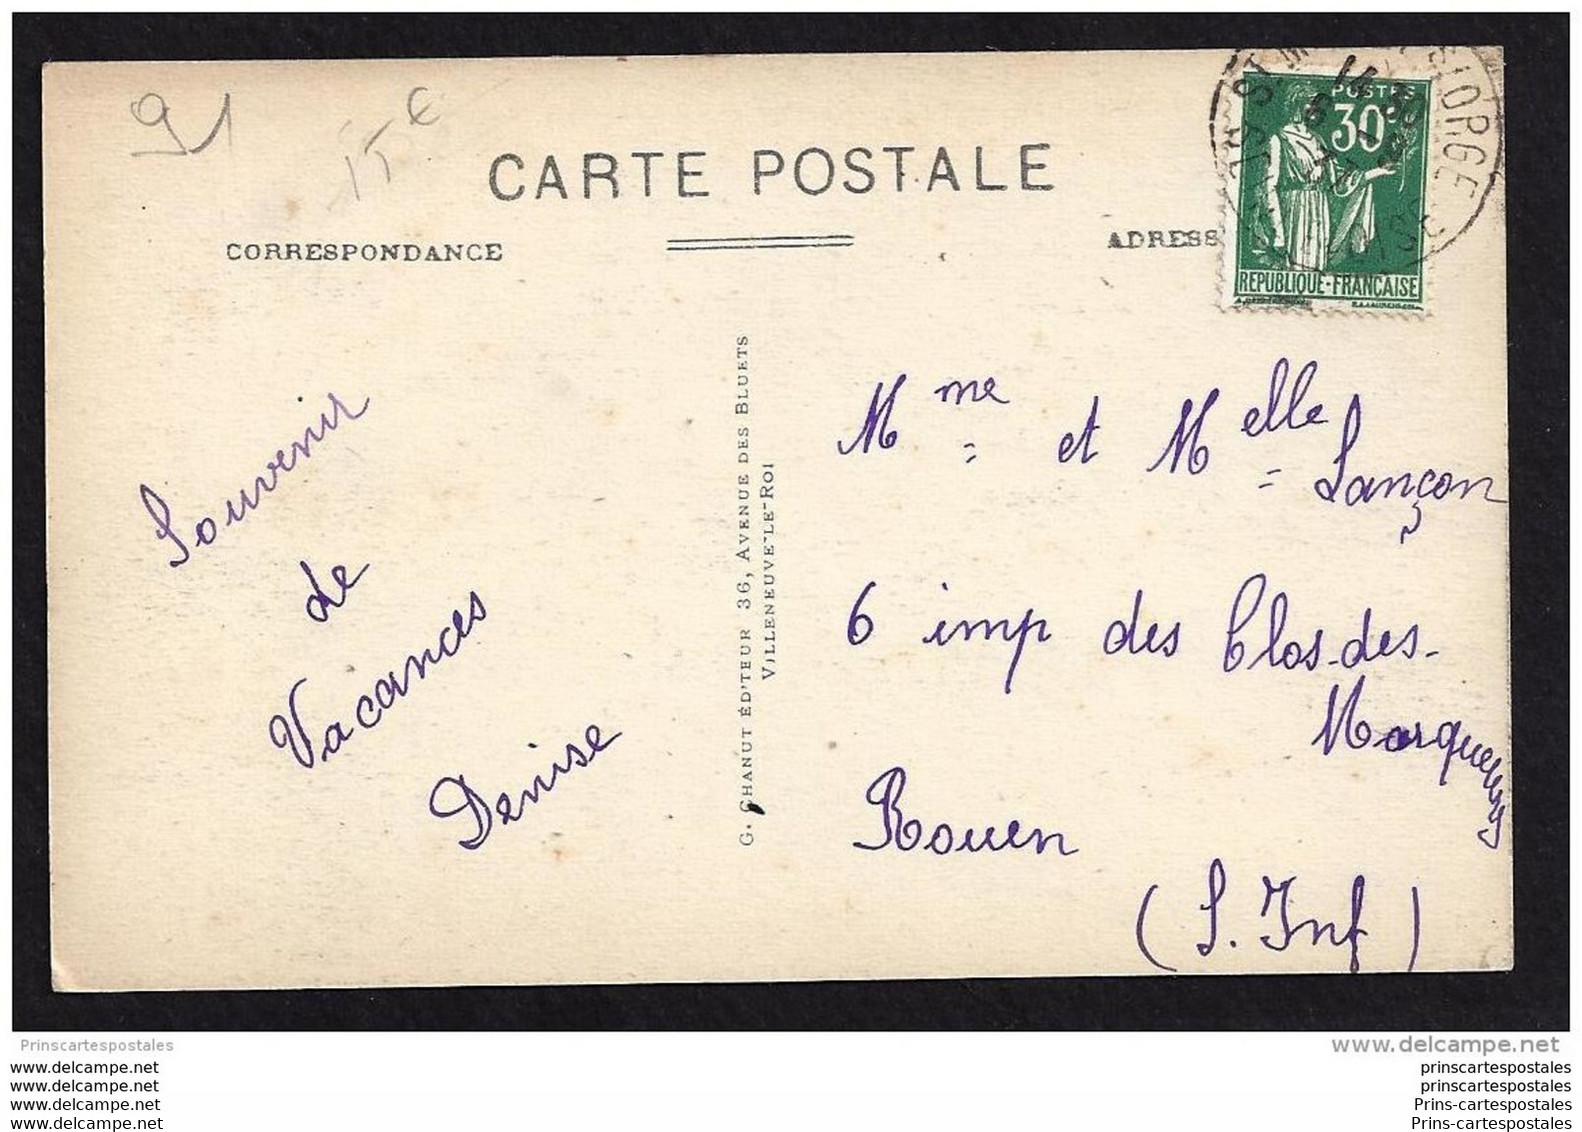 91
15€
CARTE POSTALE
CORRESPONDANCE
ADRESS
POSTES
30c
REPUBLIQUE-FRANÇAISE
ORGE
Souvenir
de
Vacances
Denise
G. CHANUT ÉD'TEUR 36, AVENUE DES BLUETS
VILLENEUVE-LE-ROI
Mme et Melle
Lançon
6 imp des Clos-des-
Marquerues
Rouen
(S. Inf)
Prinscartespostales
www.delcampe.net
www.delcampe.net
www.delcampe.net
www.delcampe.net
www.delcampe.net
prinscartespostales
prinscartespostales
Prins-cartespostales
Prins-cartespostales